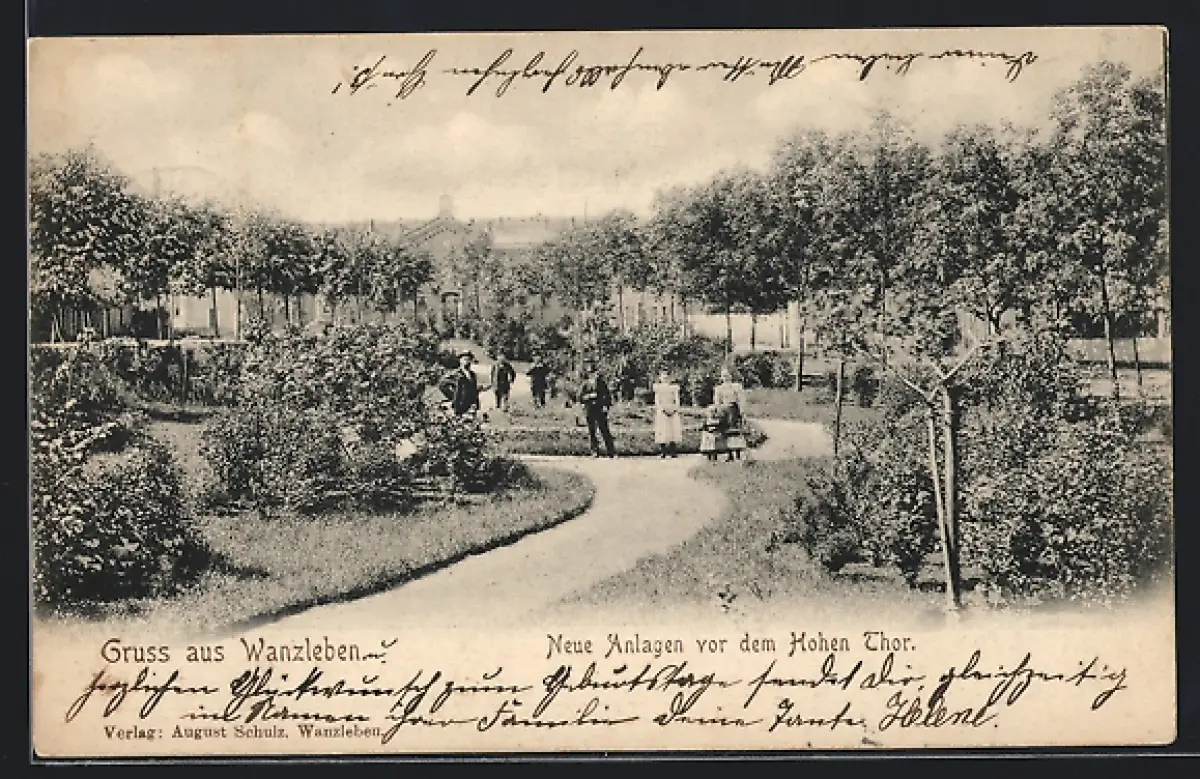 Deiner lieben Mutter ebenfalls
Gruss aus Wanzleben. u.
Neue Anlagen vor dem Hohen Thor.
herzlichen Glückwunsch zum Geburtstage sendet Dir, gleichzeitig
im Namen ihrer Familie Deine Tante Helene.
Verlag: August Schulz, Wanzleben.